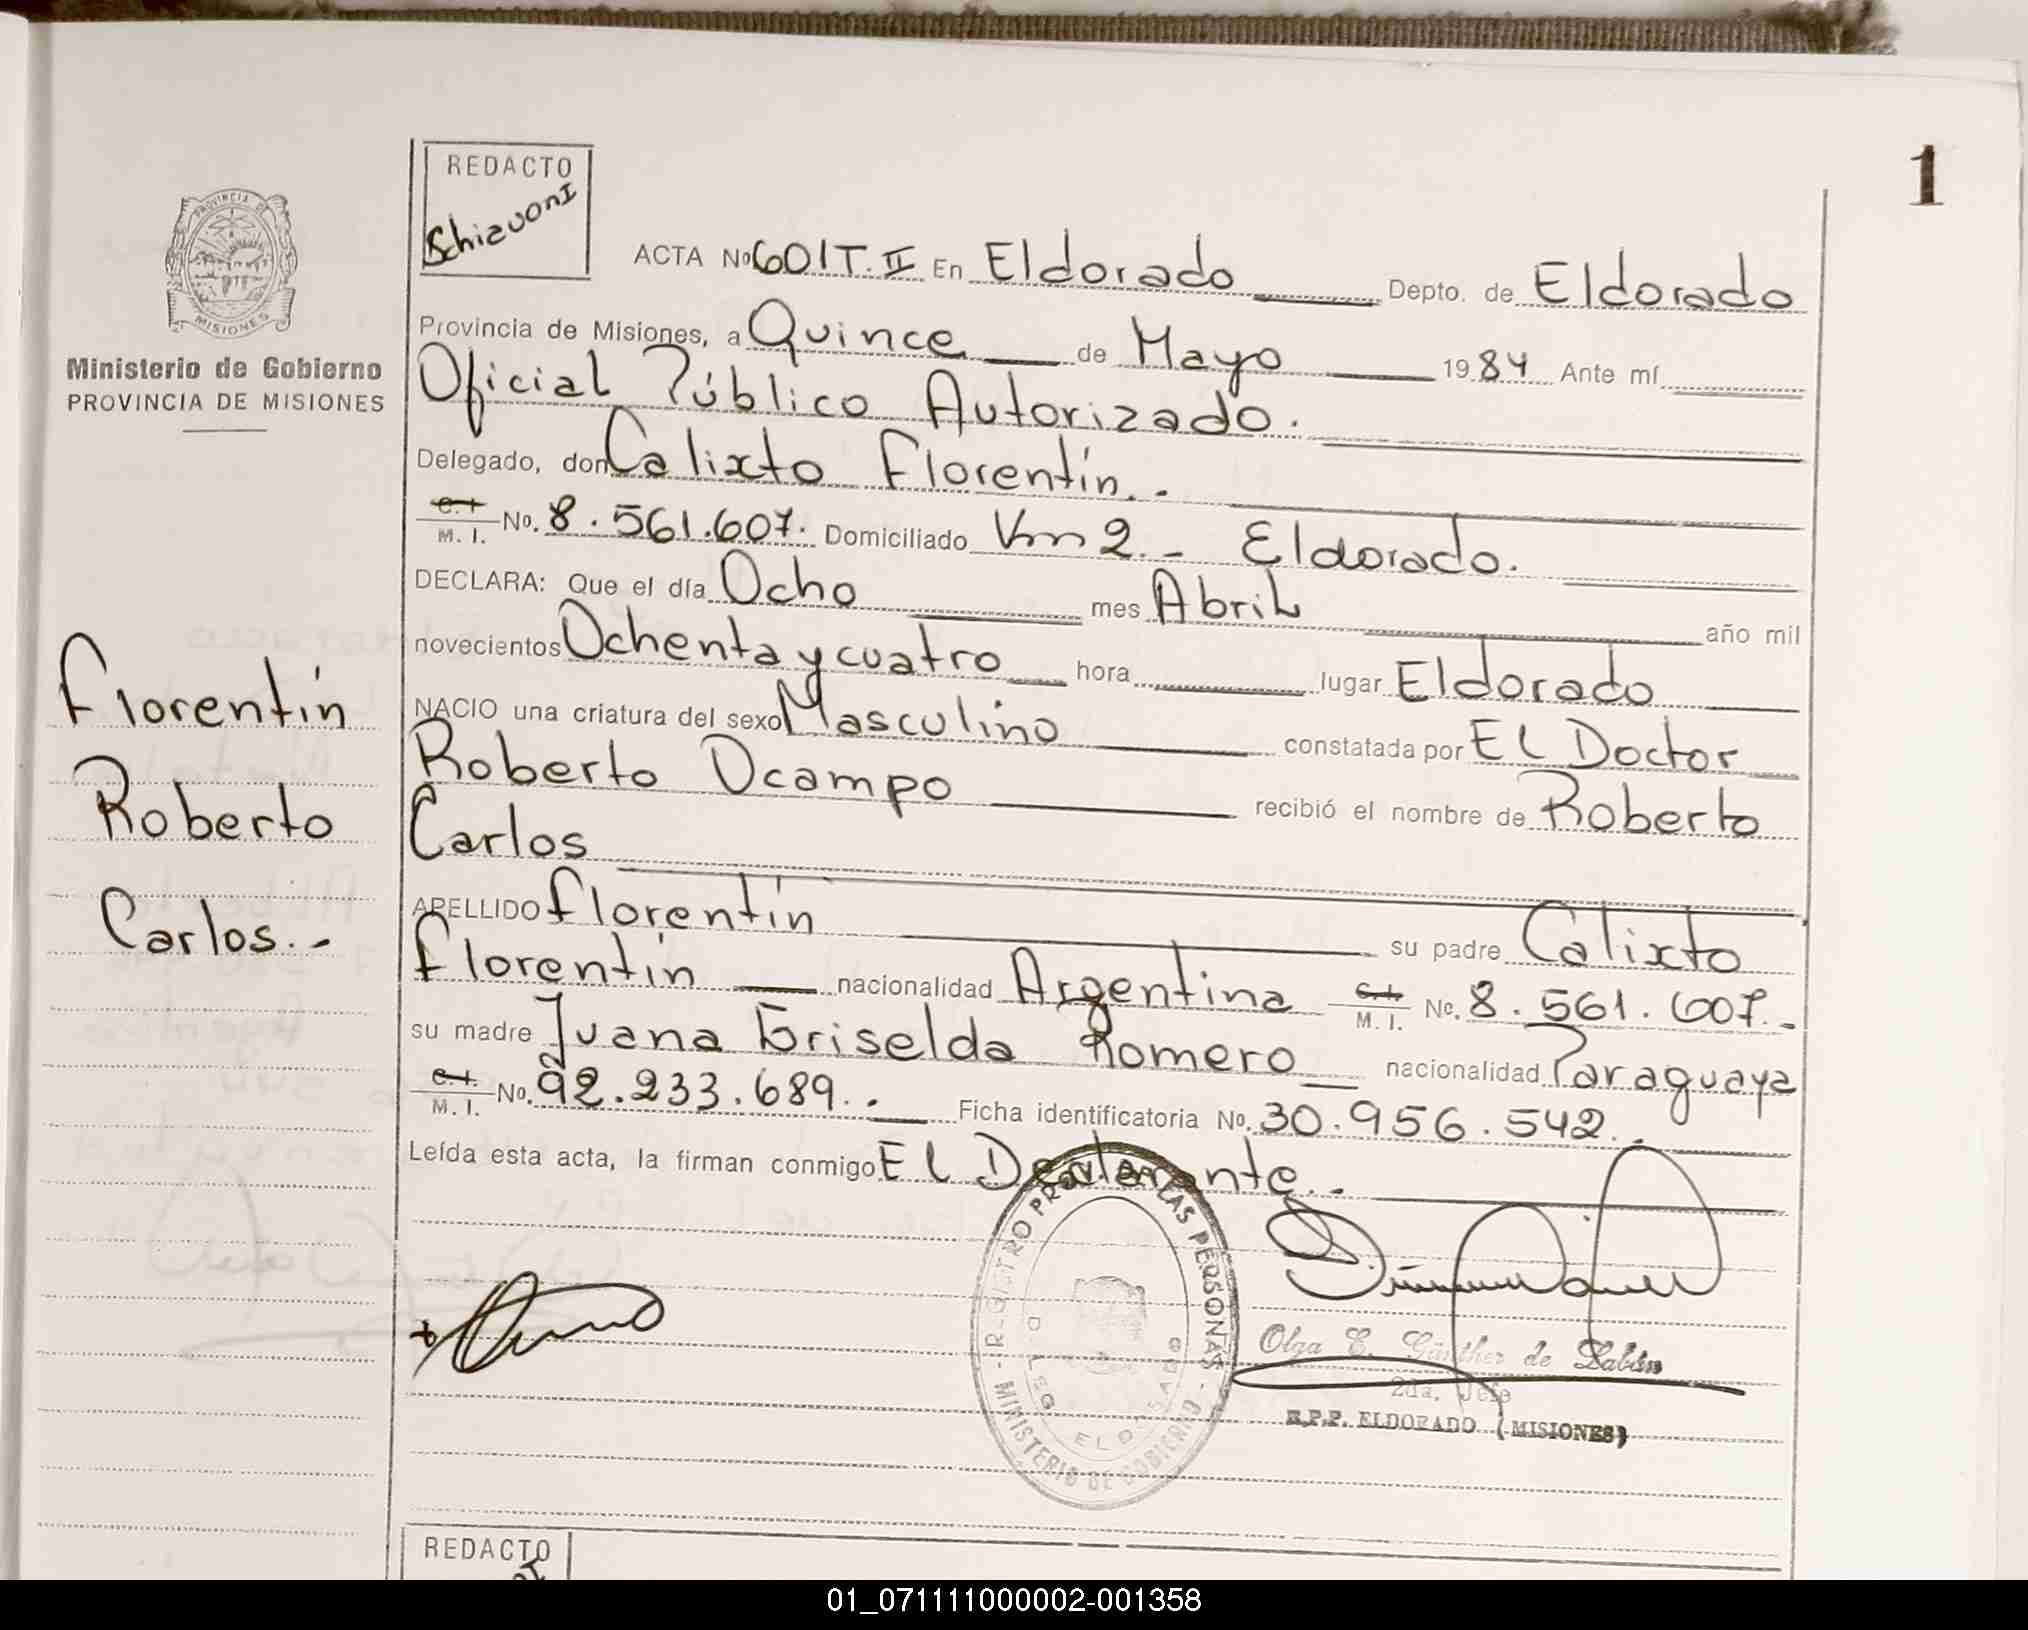 1
REDACTO
Schiavoni
PROVINCIA DE
MISIONES
Ministerio de Gobierno
PROVINCIA DE MISIONES
ACTA No 601 T. II En Eldorado Depto. de Eldorado
Provincia de Misiones, a Quince de Mayo 1984 Ante mí
Oficial Público Autorizado.
Delegado, don Calixto Florentín.-
C.I. M. I. No. 8.561.607. Domiciliado Km 2.- Eldorado.
DECLARA: Que el día Ocho mes Abril año mil
novecientos Ochenta y cuatro hora lugar Eldorado
NACIO una criatura del sexo Masculino constatada por El Doctor
Roberto Ocampo recibió el nombre de Roberto
Carlos
APELLIDO Florentín su padre Calixto
Florentín nacionalidad Argentina C.I. M. I. No. 8.561.607.-
su madre Juana Griselda Romero nacionalidad Paraguaya
C.I. M. I. No. 92.233.689.- Ficha identificatoria No. 30.956.542.-
Leída esta acta, la firman conmigo El Declarante.-
Florentín
Roberto
Carlos.-
REGISTRO PROV. DE LAS PERSONAS
MINISTERIO DE GOBIERNO
ELDORADO
Olga E. Günther de
2da. Jefe
R.P.P. ELDORADO (MISIONES)
REDACTO
01_071111000002-001358